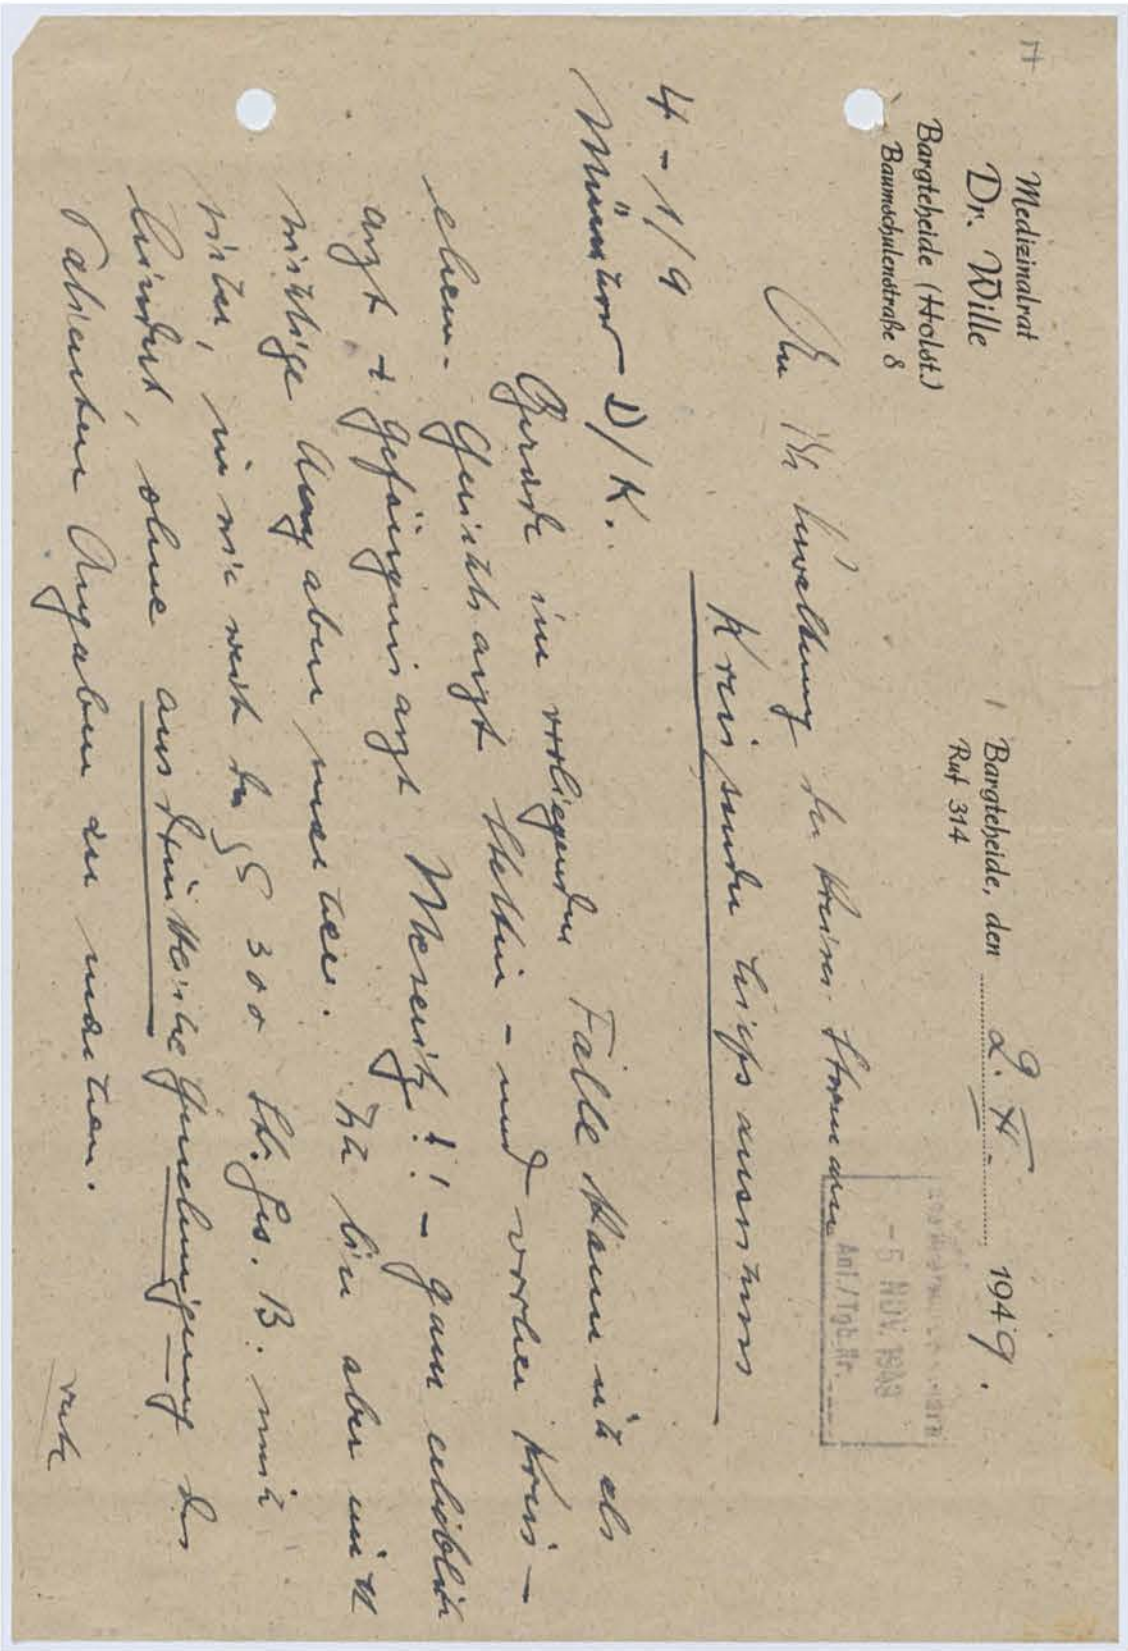 Medizinalrat
Dr. Wille
Bargteheide (Holst.)
Baumschulenstraße 8
Bargteheide, den 2. XI. 1949.
Ruf 314
- 5 NOV. 1949
Ant./Tgb.Nr.
An die Verwaltung des Kreises Stormarn
Kreissonderhilfsausschuss
4-1/9
Müntor D/K.
Gerade im vorliegenden Falle kann ich als
ehem. Gerichtsarzt Stettin - und vorher Kreis-
arzt + Gefängnisarzt Meseritz!! - ganz erheblich
wichtige Angaben machen. Ich bin aber nicht
sicher, ob mich nicht der § 300 Str.Ges.B. mich
hindert, ohne ausdrückliche Genehmigung des
Patienten Angaben zu machen.